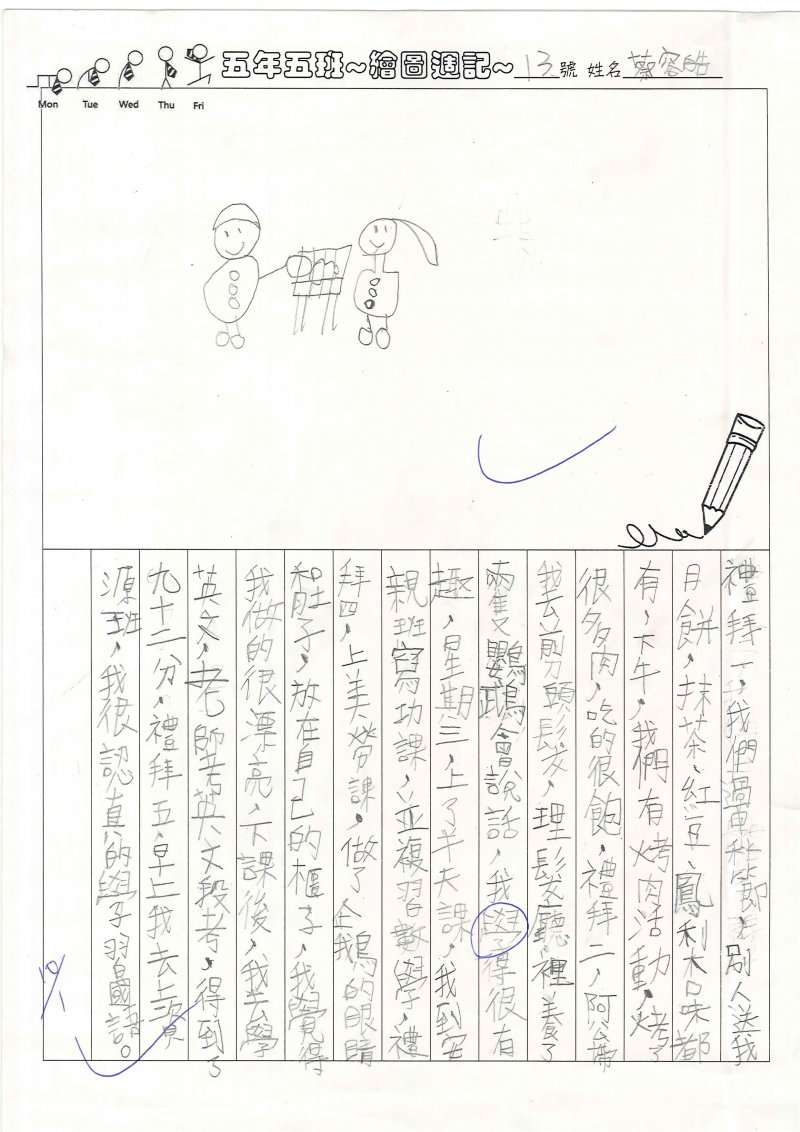 五年五班~繪圖週記~ 13號 姓名蔡容皓
Mon Tue Wed Thu Fri
禮拜一，我們過中秋節，別人送我
月餅，抹茶、紅豆、鳳利口味都
有，下午，我們有烤肉活動，烤了
很多肉，吃的很飽，禮拜二，阿公帶
我去剪頭髮，理髮廳裡養了
兩隻鸚鵡會說話，我覺得很有
趣，星期三，上了半天課，我到安
親班寫功課，並複習數學，禮
拜四，上美勞課，做了企鵝的眼睛
和肚子，放在自己的櫃子，我覺得
我做的很漂亮，下課後，我去學
英文，老師考英文段考，得到了
九十二分，禮拜五，早上我去上資
源班，我很認真的學習國語。
10/1